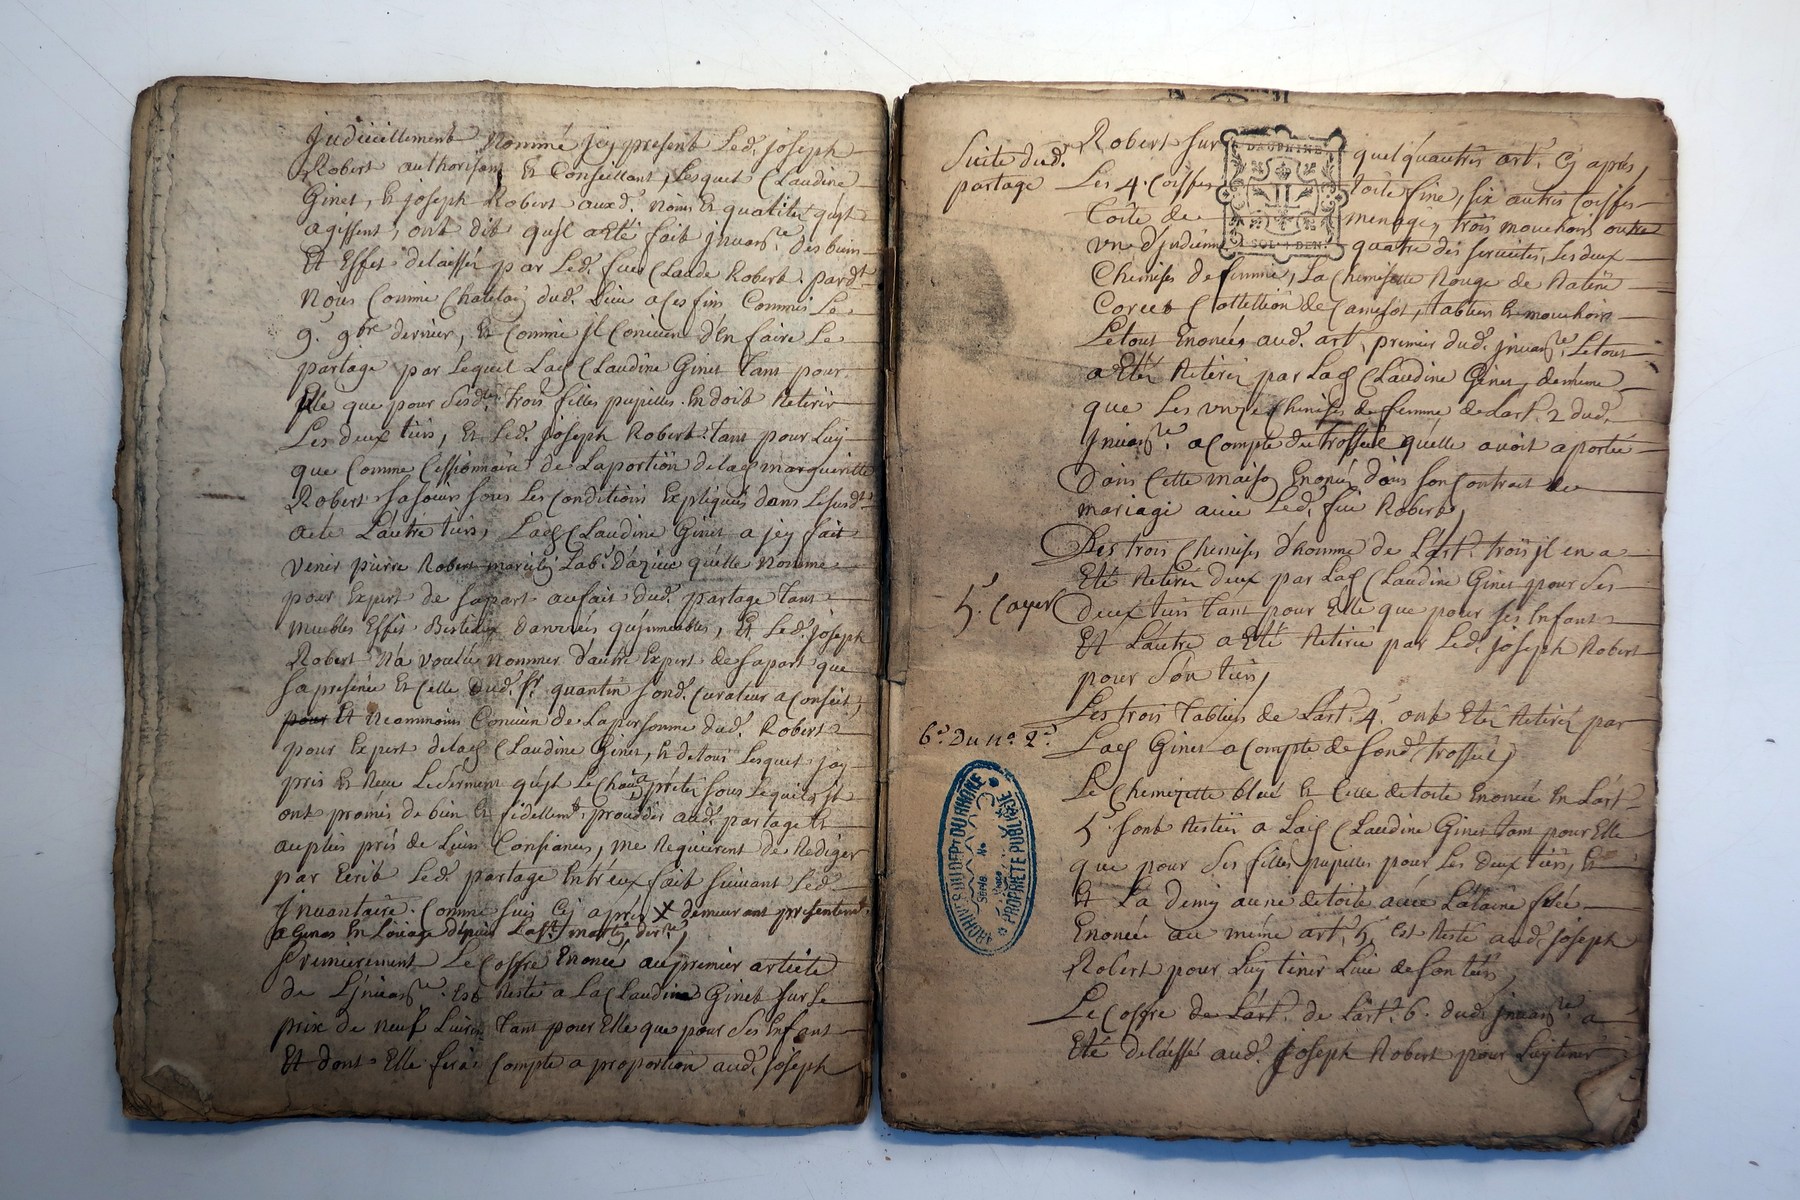 Judiciellement Nommé jcy present Led. joseph
Robert authorisant Et Conseillant, Lesquels Claudine
Ginet, Et joseph Robert auxd. noms Et qualités qu'jls
agissent, ont dit qu'jl a Eté fait jnuare. des biens
Et Effets delaissés par Led. feu Claude Robert pardt
Nous Comme Chatelain dud. Lieu a Ces fins Commis Le
9. 9bre dernier, Et Comme jl Conuient d'En faire Le
partage par Lequel Lad. Claudine Ginet Tant pour
Elle que pour Sesdtes trois filles pupilles En doit Retirer
Les deux tiers, Et Led. joseph Robert tant pour Luy
que Comme Cessionnaire de La portion de lad. margueritte
Robert Sa soeur sous Les Conditions Expliqués dans Le susdt
acte L'autre tiers, Lad. Claudine Ginet a jcy fait
venir pierre Robert Labr. d'azieu qu'elle Nomme
pour Expert de sa part au fait dud. partage Tant
meubles Effets Bestiaux danrées qu'jmeubles, Et Led. joseph
Robert N'a voulu nommer d'autre Expert de sa part que
Sa presence Et Celle dud. sr. quantin Sond. Curateur a Conseil,
pour Et Neanmoins Conuien de La personne dud. Robert
pour Expert de lad. Claudine Ginet, Et de tous Lesquels jay
pris Et Receu Le Serment qu'jls ont prété sous Lequel jls
ont promis de bien Et fidellemt. proceder aud. partage Et
au plus prés de Leurs Consciences, me Requierent de Rediger
par Ecrit Led. partage Entr'eux fait suiuant Led.
Jnuantaire. Comme suit Cy aprés X demeurant presentemt.
a Genas En Loüage depuis La st. martin derre,
Premierement Le Coffre Enoncé au premier article
de L'jnuare. Est Resté a La Claudine Ginet sur Le
prix de neuf Liures tant pour Elle que pour Ses Enfans
Et dont Elle fera Compte a proportion aud. joseph
Suite dud.
partage
Robert sur quelqu'autres art. Cy aprés,
Les 4. Coiffes toile fine, six autres Coiffes
toile de menage, trois mouchoirs outre
vn d'jndienne quatre des seruietes, Les deux
Chemises de femme, La Chemisette Rouge de Ratine
Corcet Cottillon de Camelot, tablier Et mouchoir
Le tout Enoncés aud. art. premier dud. jnuare. Le tout
a Eté Retiré par Lad. Claudine Ginet, de méme
que Les vnze Chemises de femme de L'art. 2 dud.
Jnuare. a Compte du trosseul qu'elle auoit aporté
Dans Cette maison Enoncé dans son Contract de
mariage auec Led. feu Robert,
Des trois Chemises d'homme de L'art. trois jl en a
Eté Retiré deux par Lad. Claudine Ginet pour Ses
deux tiers tant pour Elle que pour Ses Enfans
Et L'autre a Eté Retirée par Led. joseph Robert
pour Son tiers,
5e. Cayer
Les trois Tabliers de L'art. 4. ont Eté Retirés par
Lad. Ginet a Compte de Sond. trosseul,
6e. Du No. 2e.
La Chemizette bleu Et Celle de toile Enoncée En L'art.
5. sont Restées a Lad. Claudine Ginet tant pour Elle
que pour Ses filles pupilles pour Les deux tiers, Et
Et La demy aune de toile auec La laine filée
Enoncée au méme art. 5, Est Resté aud. joseph
Robert pour Luy tenir Lieu de Son tiers,
Le Coffre de L'art. de L'art. 6. dud. jnuare. a
Eté delaissé aud. Joseph Robert pour Luy tenir
DAUPHINE
SOL 4 DEN.
ARCHIVES DU DEPT DU RHONE
PROPRIETE PUBLIQUE